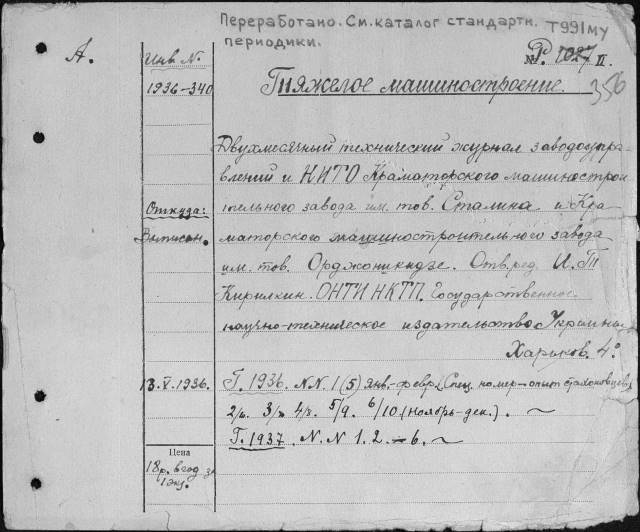 Переработано. См. каталог стандартн. Т991му
периодики.
А.
Инв. N.
1936-340
№Р. 1027 II.
356
Тяжелое машиностроение.
Двухмесячный технический журнал заводоупра-
влений и НИТО Краматорского машинострои
тельного завода им. тов. Сталина и Кра
маторского машиностроительного завода
им. тов. Орджоникидзе. Отв. ред. И. Т
Кирилкин. ОНТИ НКТП. Государственное
научно-техническое издательство Украины
Харьков. 4°
Откуда:
Выписан.
13.V.1936.
Г. 1936. NN. 1(5) янв.-февр. (Спец. номер-опыт стахановцев)
2/6. 3/7. 4/8. 5/9. 6/10 (ноябрь-дек.). ~
Г. 1937. N.N 1. 2. - 6. ~
Цена
18р. в год за
1 экз.